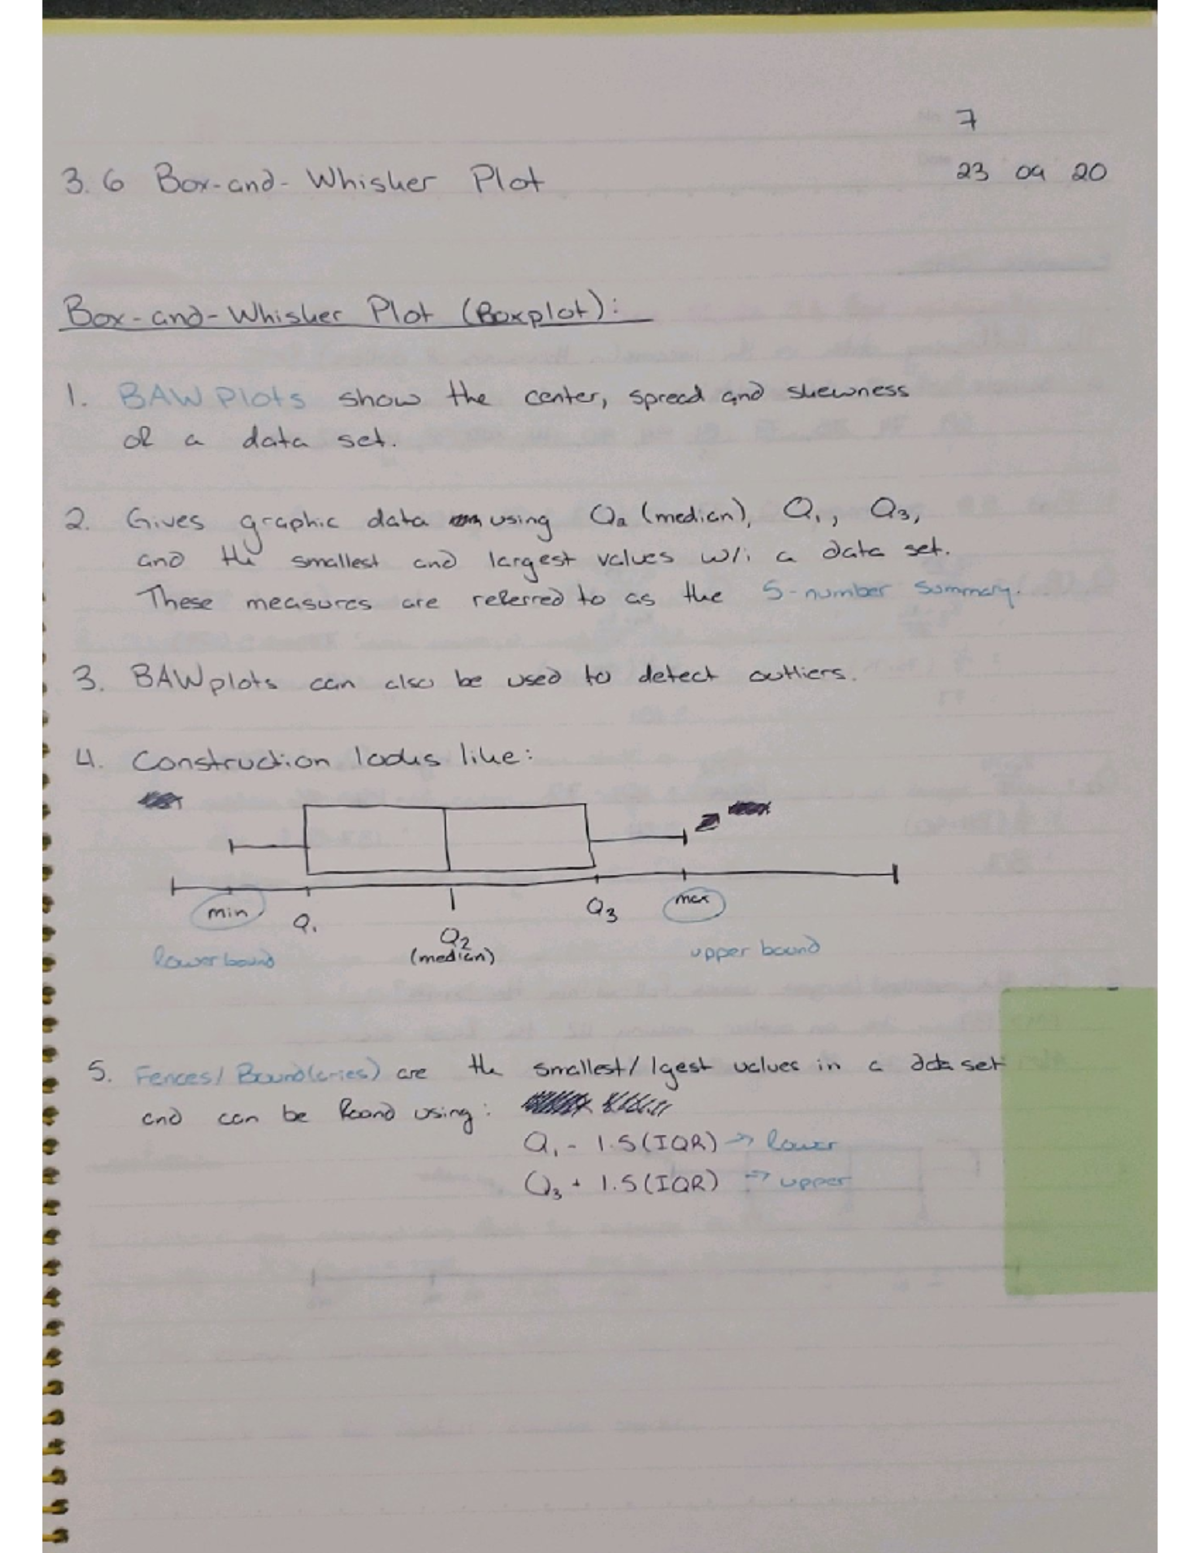 7
3.6 Box-and-Whisker Plot
23 09 20
Box-and-Whisker Plot (Boxplot):
1. BAW Plots show the center, spread and skewness
of a data set.
2. Gives graphic data using Q2 (median), Q1, Q3,
and the smallest and largest values w/i a data set.
These measures are referred to as the 5-number summary.
3. BAW plots can also be used to detect outliers.
4. Construction looks like:
min Q1 Q2 Q3 max
(median)
lower bound upper bound
5. Fences/Bound(aries) are the smallest/lgest values in a data set
and can be found using:
Q1 - 1.5(IQR) => lower
Q3 + 1.5(IQR) => upper